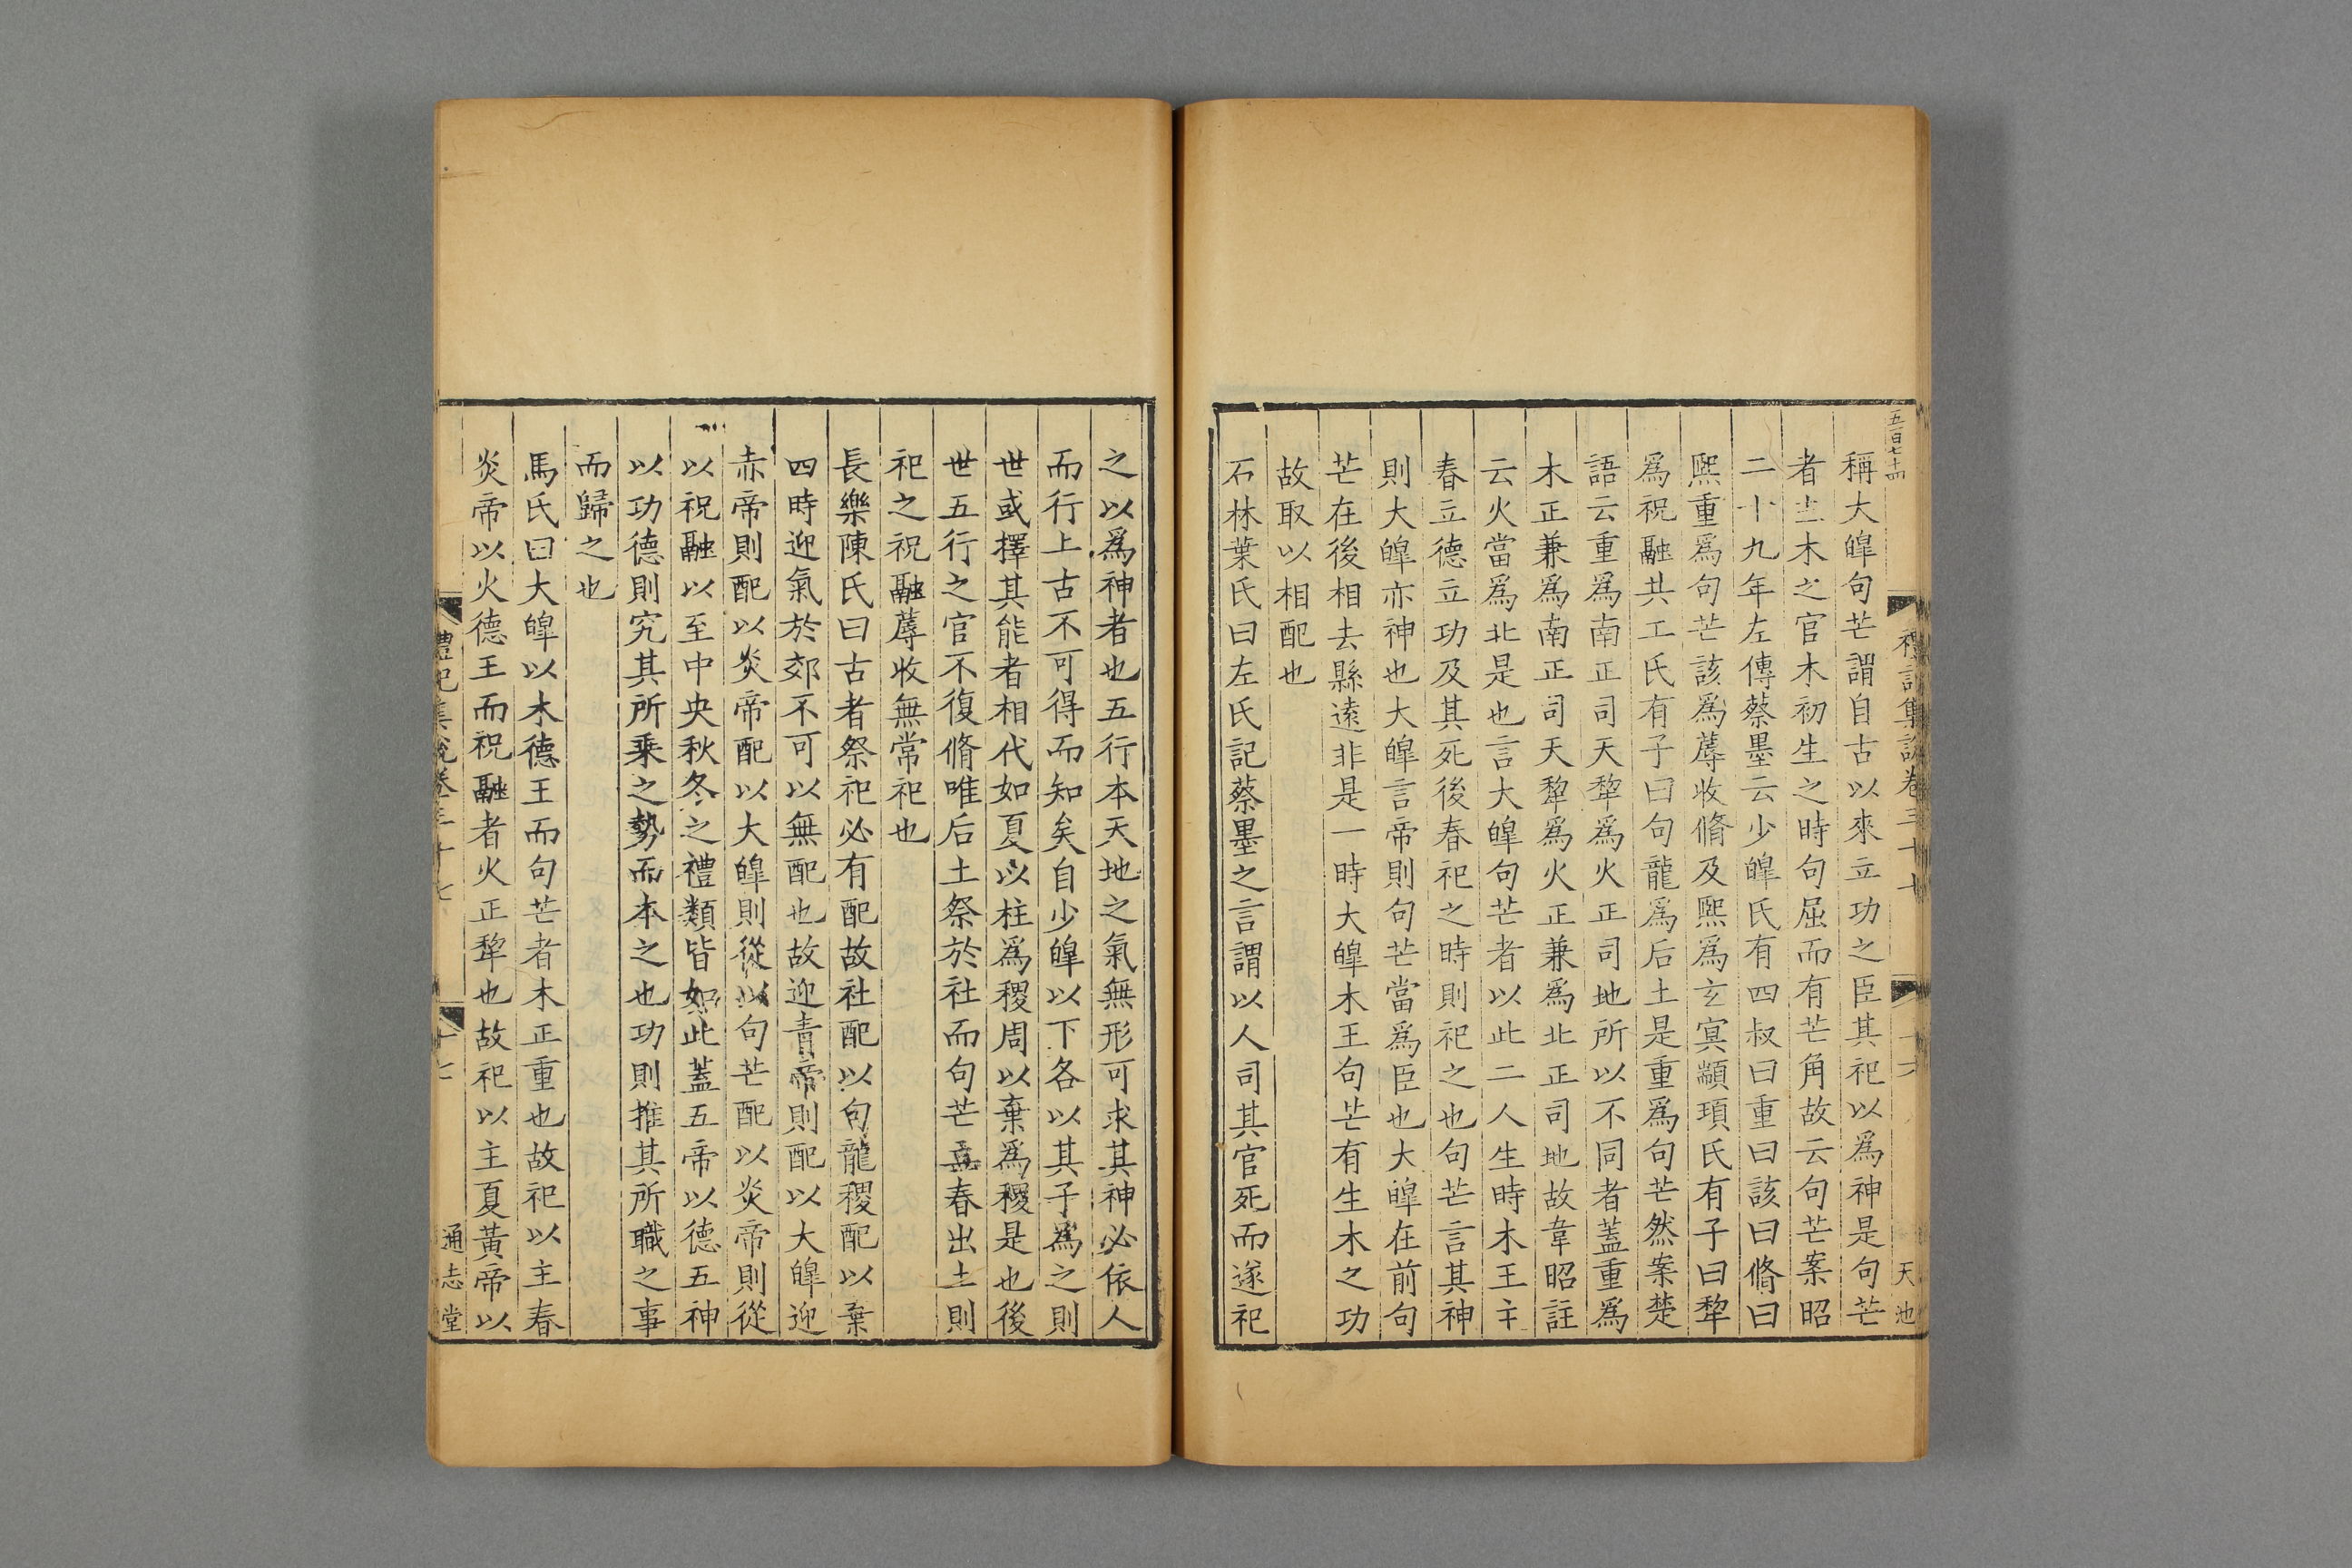 五百七十四
禮記集說卷三十七
十六
天池
稱大皥句芒謂自古以來立功之臣其祀以爲神是句芒
者主木之官木初生之時句屈而有芒角故云句芒案昭
二十九年左傳蔡墨云少皥氏有四叔曰重曰該曰脩曰
熈重爲句芒該爲蓐收脩及熈爲玄冥顓頊氏有子曰犂
爲祝融共工氏有子曰句龍爲后土是重爲句芒然案楚
語云重爲南正司天犂爲火正司地所以不同者蓋重爲
木正兼爲南正司天犂爲火正兼爲北正司地故韋昭註
云火當爲北是也言大皥句芒者以此二人生時木王主
春立德立功及其死後春祀之時則祀之也句芒言其神
則大皥亦神也大皥言帝則句芒當爲臣也大皥在前句
芒在後相去縣遠非是一時大皥木王句芒有生木之功
故取以相配也
石林葉氏曰左氏記蔡墨之言謂以人司其官死而遂祀
之以爲神者也五行本天地之氣無形可求其神必依人
而行上古不可得而知矣自少皥以下各以其子爲之則
世或擇其能者相代如夏以柱爲稷周以棄爲稷是也後
世五行之官不復脩唯后土祭於社而句芒盖春出土則
祀之祝融蓐收無常祀也
長樂陳氏曰古者祭祀必有配故社配以句龍稷配以棄
四時迎氣於郊不可以無配也故迎青帝則配以大皥迎
赤帝則配以炎帝配以大皥則從以句芒配以炎帝則從
以祝融以至中央秋冬之禮類皆如此蓋五帝以德五神
以功德則究其所乗之勢而本之也功則推其所職之事
而歸之也
馬氏曰大皥以木德王而句芒者木正重也故祀以主春
炎帝以火德王而祝融者火正犂也故祀以主夏黃帝以
禮記集說卷三十七
十七
通志堂